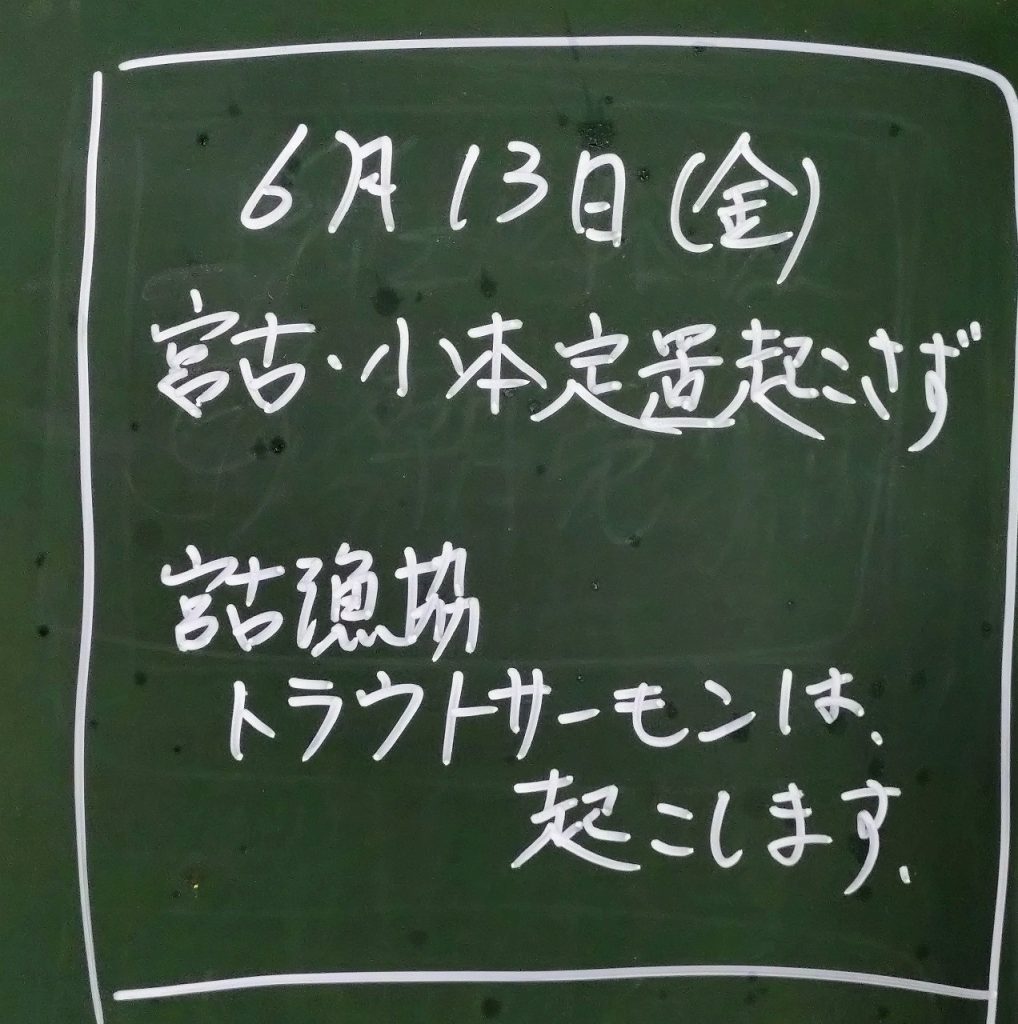 6月13日(金)
宮古・小本定置起こさず
宮古漁協
トラウトサーモンは、
起こします.